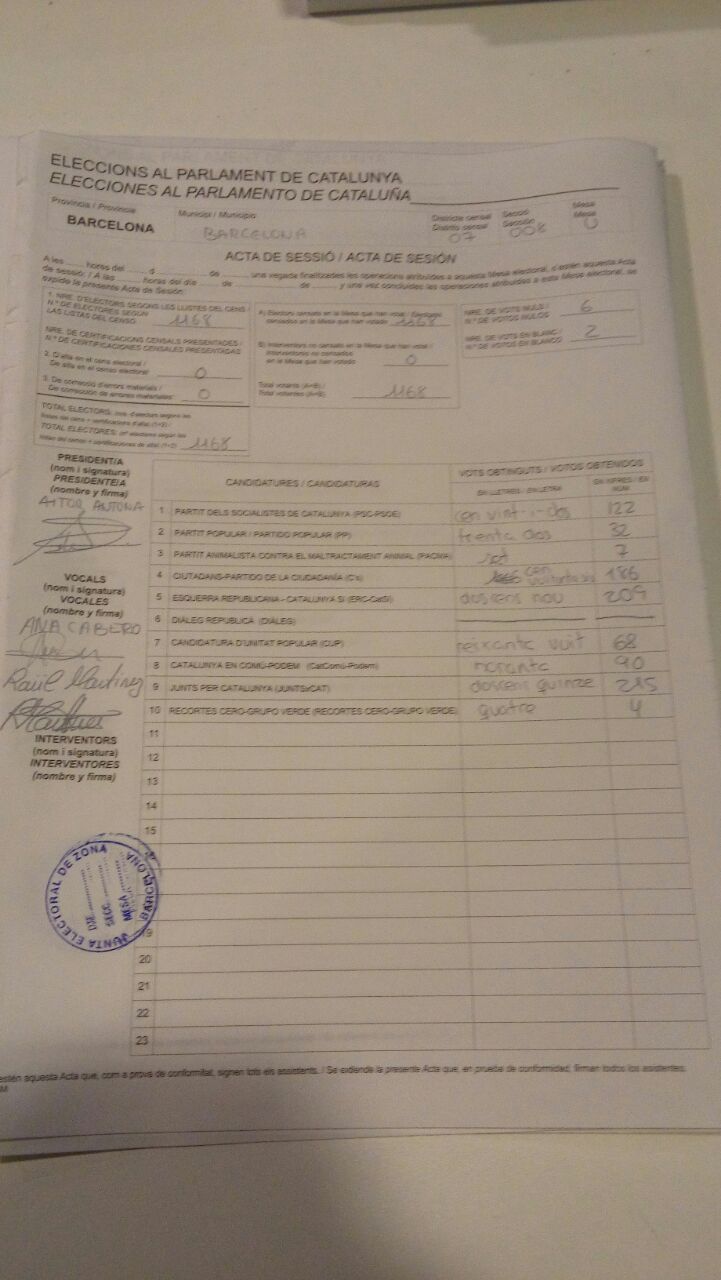 ELECCIONS AL PARLAMENT DE CATALUNYA
ELECCIONES AL PARLAMENTO DE CATALUÑA
Província / Provincia
BARCELONA
Municipi / Municipio
BARCELONA
Districte censal
Distrito censal
07
Secció
Sección
008
Mesa
Mesa
U
ACTA DE SESSIÓ / ACTA DE SESIÓN
A les ...... hores del ...... d ............ de ...... una vegada finalitzades les operacions atribuïdes a aquesta Mesa electoral, s'estén aquesta Acta
de sessió. / A las ...... horas del día ...... de ............ de ...... y una vez concluidas las operaciones atribuidas a esta Mesa electoral, se
expide la presente Acta de Sesión:
1. NRE. D'ELECTORS SEGONS LES LLISTES DEL CENS /
N.º DE ELECTORES SEGÚN
LAS LISTAS DEL CENSO 1168
NRE. DE CERTIFICACIONS CENSALS PRESENTADES /
N.º DE CERTIFICACIONES CENSALES PRESENTADAS
2. D'alta en el cens electoral /
De alta en el censo electoral 0
3. De correcció d'errors materials /
De corrección de errores materiales 0
TOTAL ELECTORS: (nre. d'electors segons les
llistes del cens + certificacions d'alta) (1+2) /
TOTAL ELECTORES: (nº electores según las
listas del censo + certificaciones de alta) (1+2) 1168
A) Electors censats en la Mesa que han votat / Electores
censados en la Mesa que han votado 1168
B) Interventors no censats en la Mesa que han votat /
Interventores no censados
en la Mesa que han votado 0
Total votants (A+B) /
Total votantes (A+B) 1168
NRE. DE VOTS NULS /
N.º DE VOTOS NULOS 6
NRE. DE VOTS EN BLANC /
N.º DE VOTOS EN BLANCO 2
PRESIDENT/A
(nom i signatura)
PRESIDENTE/A
(nombre y firma)
AITOR ANTONA
VOCALS
(nom i signatura)
VOCALES
(nombre y firma)
ANA CABERO
Raül Martinez
INTERVENTORS
(nom i signatura)
INTERVENTORES
(nombre y firma)
CANDIDATURES / CANDIDATURAS
VOTS OBTINGUTS / VOTOS OBTENIDOS
EN LLETRES / EN LETRA
EN XIFRES / EN NÚM.
1 PARTIT DELS SOCIALISTES DE CATALUNYA (PSC-PSOE) cen vint-i-dos 122
2 PARTIT POPULAR / PARTIDO POPULAR (PP) trenta dos 32
3 PARTIT ANIMALISTA CONTRA EL MALTRACTAMENT ANIMAL (PACMA) set 7
4 CIUTADANS-PARTIDO DE LA CIUDADANÍA (C's) cen 186
5 ESQUERRA REPUBLICANA - CATALUNYA SÍ (ERC-CatSí) doscens nou 209
6 DIÀLEG REPUBLICÀ (DIÀLEG)
7 CANDIDATURA D'UNITAT POPULAR (CUP) seixanta vuit 68
8 CATALUNYA EN COMÚ-PODEM (CatComú-Podem) noranta 90
9 JUNTS PER CATALUNYA (JUNTSxCAT) doscens quinze 215
10 RECORTES CERO-GRUPO VERDE (RECORTES CERO-GRUPO VERDE) quatre 4
11
12
13
14
15
19
20
21
22
23
JUNTA ELECTORAL DE ZONA
BARCELONA
DTE.
SECC.
MESA
estén aquesta Acta que, com a prova de conformitat, signen tots els assistents. / Se extiende la presente Acta que, en prueba de conformidad, firman todos los asistentes.